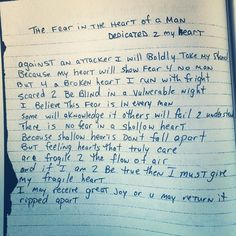 The Fear in the Heart of a Man
Dedicated 2 my heart
against an attacker I will Boldly Take my Stand
Because my heart will show Fear 4 no man
But 4 a Broken heart I run with fright
scared 2 Be Blind in a vulnerable night
I Believe this Fear is in every man
Some will aknowledge it others will fail 2 understand
There is no fear in a shallow heart
Because shallow hearts Don't fall apart
But feeling hearts that truly care
are fragile 2 the flow of air
and if I am 2 Be true then I must give
my fragile heart
I may receive great joy or u may return it
ripped apart